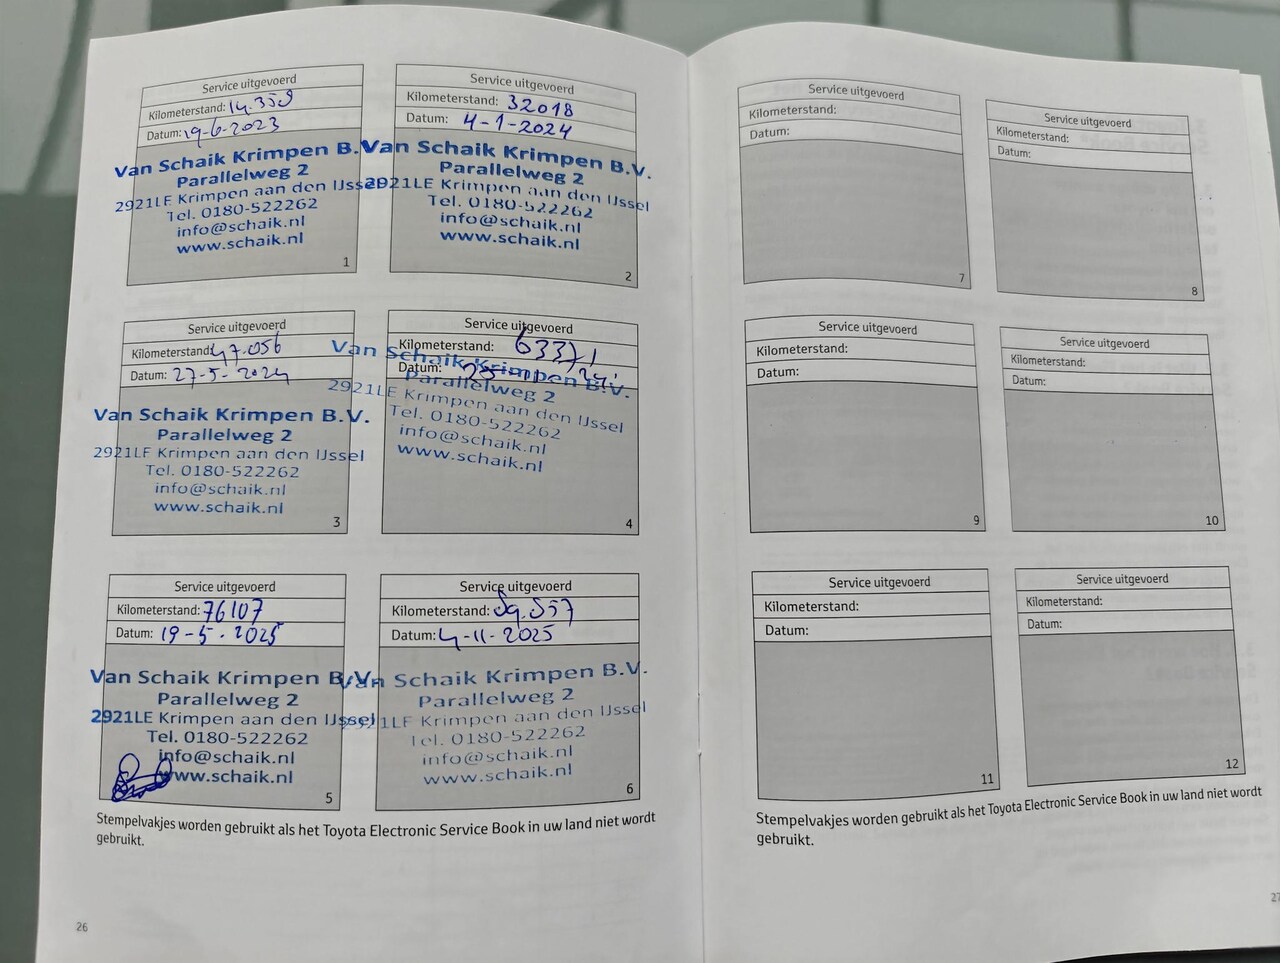 Service uitgevoerd
Kilometerstand: 14.358
Datum: 19-6-2023
Van Schaik Krimpen B.V.
Parallelweg 2
2921LE Krimpen aan den IJssel
Tel. 0180-522262
info@schaik.nl
www.schaik.nl
1
Service uitgevoerd
Kilometerstand: 32018
Datum: 4-1-2024
Van Schaik Krimpen B.V.
Parallelweg 2
2921LE Krimpen aan den IJssel
Tel. 0180-522262
info@schaik.nl
www.schaik.nl
2
Service uitgevoerd
Kilometerstand: 47.056
Datum: 27-5-2024
Van Schaik Krimpen B.V.
Parallelweg 2
2921LE Krimpen aan den IJssel
Tel. 0180-522262
info@schaik.nl
www.schaik.nl
3
Service uitgevoerd
Kilometerstand: 63371
Datum:
Van Schaik Krimpen B.V.
Parallelweg 2
2921LE Krimpen aan den IJssel
Tel. 0180-522262
info@schaik.nl
www.schaik.nl
4
Service uitgevoerd
Kilometerstand: 76107
Datum: 19-5-2025
Van Schaik Krimpen B.V.
Parallelweg 2
2921LE Krimpen aan den IJssel
Tel. 0180-522262
info@schaik.nl
www.schaik.nl
5
Service uitgevoerd
Kilometerstand:
Datum: 4-11-2025
Van Schaik Krimpen B.V.
Parallelweg 2
2921LE Krimpen aan den IJssel
Tel. 0180-522262
info@schaik.nl
www.schaik.nl
6
Stempelvakjes worden gebruikt als het Toyota Electronic Service Book in uw land niet wordt
gebruikt.
26
Service uitgevoerd
Kilometerstand:
Datum:
7
Service uitgevoerd
Kilometerstand:
Datum:
8
Service uitgevoerd
Kilometerstand:
Datum:
9
Service uitgevoerd
Kilometerstand:
Datum:
10
Service uitgevoerd
Kilometerstand:
Datum:
11
Service uitgevoerd
Kilometerstand:
Datum:
12
Stempelvakjes worden gebruikt als het Toyota Electronic Service Book in uw land niet wordt
gebruikt.
27